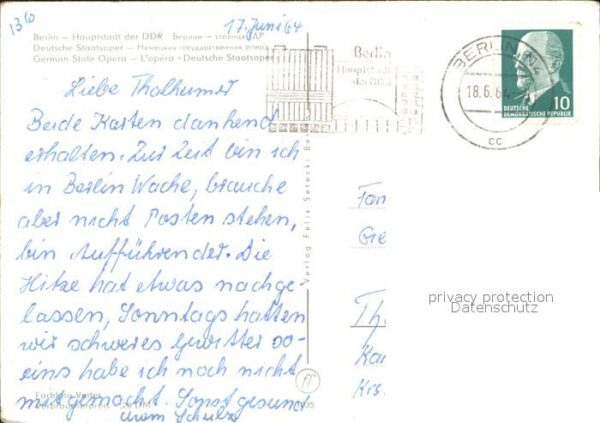 136
17. Juni 64
Berlin — Hauptstadt der DDR Берлин — столица ГДР
Deutsche Staatsoper — Немецкая государственная опера
German State Opera — L'opéra - Deutsche Staatsoper
Berlin
Hauptstadt
der DDR
BERLIN N 4
18.6.64
cc
10
DEUTSCHE
DEMOKRATISCHE REPUBLIK
Liebe Thalheimer
Beide Karten dankend
erhalten. Zur Zeit bin ich
in Berlin Wache, brauche
aber nicht Posten stehen,
bin Aufführender. Die
Hitze hat etwas nachge-
lassen, Sonntags hatten
wir schweres Gewitter so-
eins habe ich noch nicht
mitgemacht. Sonst gesund
Schulz
Verlag Felix Setecki, Be
Fam
Ge
Th.
Kar
Krs.
privacy protection
Datenschutz
Farbfoto Vetter
Verbraucherpreis DM